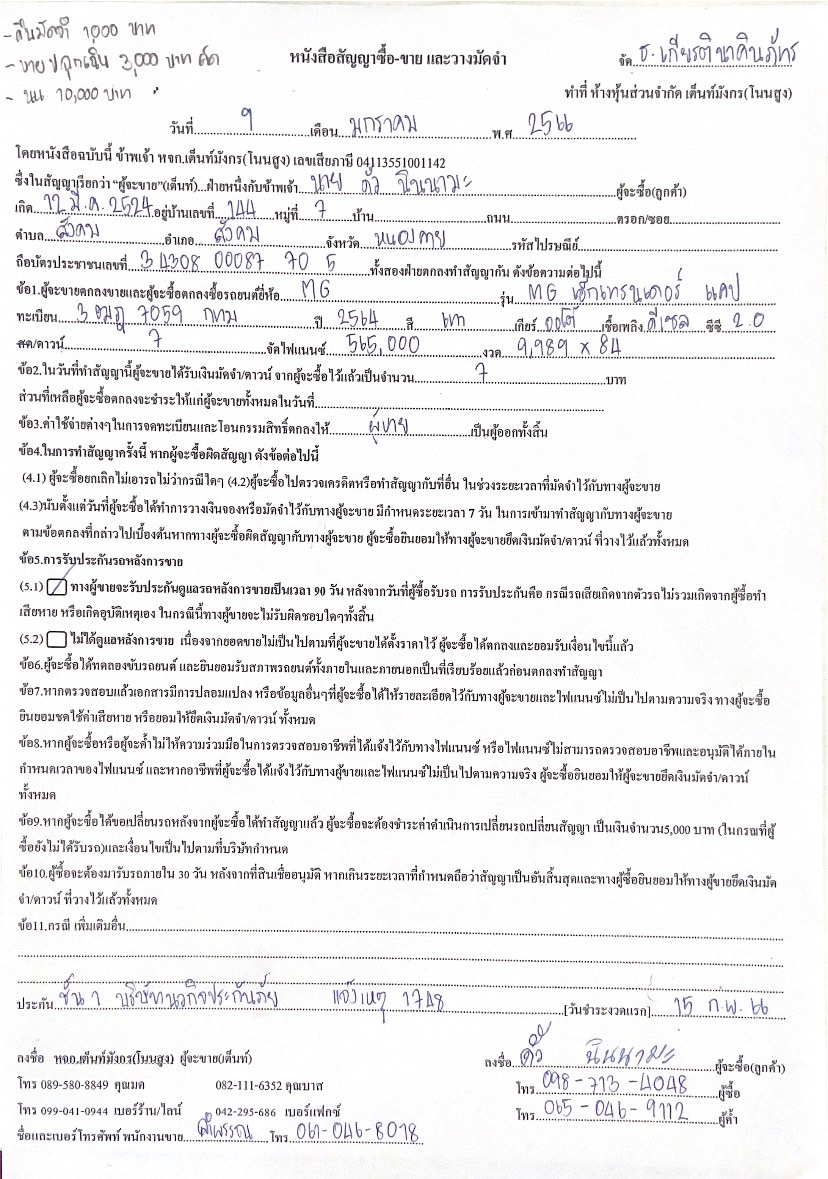 - คืนมัดจำ 1,000 บาท
- นายป ฉุกเฉิน 3,000 บาท
- นน 10,000 บาท
หนังสือสัญญาซื้อ-ขาย และวางมัดจำ
จัด ธ.เกียรตินาคินภัทร
ทำที่ ห้างหุ้นส่วนจำกัด เต็นท์มังกร(โนนสูง)
วันที่ 9 เดือน มกราคม พ.ศ 2566
โดยหนังสือฉบับนี้ ข้าพเจ้า หจก.เต็นท์มังกร(โนนสูง) เลขเสียภาษี 04113551001142
ซึ่งในสัญญาเรียกว่า "ผู้จะขาย"(เต็นท์)...ฝ่ายหนึ่งกับข้าพเจ้า นาย คั่ว นินนามะ ผู้จะซื้อ(ลูกค้า)
เกิด 12 มี.ค. 2524 อยู่บ้านเลขที่ 144 หมู่ที่ 7 บ้าน ถนน ตรอก/ซอย
ตำบล สังคม อำเภอ สังคม จังหวัด หนองคาย รหัสไปรษณีย์
ถือบัตรประชาชนเลขที่ 3 4308 00087 70 5 ทั้งสองฝ่ายตกลงทำสัญญากัน ดังข้อความต่อไปนี้
ข้อ1.ผู้จะขายตกลงขายและผู้จะซื้อตกลงซื้อรถยนต์ยี่ห้อ MG รุ่น MG เอ็กเทรนเดอร์ แคป
ทะเบียน 3 ฒฎ 7059 กทม ปี 2564 สี เทา เกียร์ ออโต้ เชื้อเพลิง ดีเซล ซีซี 2.0
สด/ดาวน์ 7 จัดไฟแนนซ์ 565,000 งวด 9,989 x 84
ข้อ2.ในวันที่ทำสัญญานี้ผู้จะขายได้รับเงินมัดจำ/ดาวน์ จากผู้จะซื้อไว้แล้วเป็นจำนวน 7 บาท
ส่วนที่เหลือผู้จะซื้อตกลงจะชำระให้แก่ผู้จะขายทั้งหมดในวันที่
ข้อ3.ค่าใช้จ่ายต่างๆในการจดทะเบียนและโอนกรรมสิทธิ์ตกลงให้ ผู้ขาย เป็นผู้ออกทั้งสิ้น
ข้อ4.ในการทำสัญญาครั้งนี้ หากผู้จะซื้อผิดสัญญา ดังข้อต่อไปนี้
(4.1) ผู้จะซื้อยกเลิกไม่เอารถไม่ว่ากรณีใดๆ (4.2)ผู้จะซื้อไปตรวจเครดิตหรือทำสัญญากับที่อื่น ในช่วงระยะเวลาที่มัดจำไว้กับทางผู้จะขาย
(4.3)นับตั้งแต่วันที่ผู้จะซื้อได้ทำการวางเงินจองหรือมัดจำไว้กับทางผู้จะขาย มีกำหนดระยะเวลา 7 วัน ในการเข้ามาทำสัญญากับทางผู้จะขาย
ตามข้อตกลงที่กล่าวไปเบื้องต้นหากทางผู้จะซื้อผิดสัญญากับทางผู้จะขาย ผู้จะซื้อยินยอมให้ทางผู้จะขายยึดเงินมัดจำ/ดาวน์ ที่วางไว้แล้วทั้งหมด
ข้อ5.การรับประกันรถหลังการขาย
(5.1) ทางผู้ขายจะรับประกันดูแลรถหลังการขายเป็นเวลา 90 วัน หลังจากวันที่ผู้ซื้อรับรถ การรับประกันคือ กรณีรถเสียเกิดจากตัวรถไม่รวมเกิดจากผู้ซื้อทำ
เสียหาย หรือเกิดอุบัติเหตุเอง ในกรณีนี้ทางผู้ขายจะไม่รับผิดชอบใดๆทั้งสิ้น
(5.2) ไม่ได้ดูแลหลังการขาย เนื่องจากยอดขายไม่เป็นไปตามที่ผู้จะขายได้ตั้งราคาไว้ ผู้จะซื้อได้ตกลงและยอมรับเงื่อนไขนี้แล้ว
ข้อ6.ผู้จะซื้อได้ทดลองขับรถยนต์ และยินยอมรับสภาพรถยนต์ทั้งภายในและภายนอกเป็นที่เรียบร้อยแล้วก่อนตกลงทำสัญญา
ข้อ7.หากตรวจสอบแล้วเอกสารมีการปลอมแปลง หรือข้อมูลอื่นๆที่ผู้จะซื้อได้ให้รายละเอียดไว้กับทางผู้จะขายและไฟแนนซ์ไม่เป็นไปตามความจริง ทางผู้จะซื้อ
ยินยอมชดใช้ค่าเสียหาย หรือยอมให้ยึดเงินมัดจำ/ดาวน์ ทั้งหมด
ข้อ8.หากผู้จะซื้อหรือผู้จะค้ำไม่ให้ความร่วมมือในการตรวจสอบอาชีพที่ได้แจ้งไว้กับทางไฟแนนซ์ หรือไฟแนนซ์ไม่สามารถตรวจสอบอาชีพและอนุมัติได้ภายใน
กำหนดเวลาของไฟแนนซ์ และหากอาชีพที่ผู้จะซื้อได้แจ้งไว้กับทางผู้ขายและไฟแนนซ์ไม่เป็นไปตามความจริง ผู้จะซื้อยินยอมให้ผู้จะขายยึดเงินมัดจำ/ดาวน์
ทั้งหมด
ข้อ9.หากผู้จะซื้อได้ขอเปลี่ยนรถหลังจากผู้จะซื้อได้ทำสัญญาแล้ว ผู้จะซื้อจะต้องชำระค่าดำเนินการเปลี่ยนรถเปลี่ยนสัญญา เป็นเงินจำนวน5,000 บาท (ในกรณีที่ผู้
ซื้อยังไม่ได้รับรถ)และเงื่อนไขเป็นไปตามที่บริษัทกำหนด
ข้อ10.ผู้ซื้อจะต้องมารับรถภายใน 30 วัน หลังจากที่สินเชื่ออนุมัติ หากเกินระยะเวลาที่กำหนดถือว่าสัญญาเป็นอันสิ้นสุดและทางผู้ซื้อยินยอมให้ทางผู้ขายยึดเงินมัด
จำ/ดาวน์ ที่วางไว้แล้วทั้งหมด
ข้อ11.กรณี เพิ่มเติมอื่น
ประกัน ชั้น 1 บริษัทนวกิจประกันภัย แจ้งเหตุ 1748 [วันชำระงวดแรก] 15 ก.พ. 66
ลงชื่อ หจก.เต็นท์มังกร(โนนสูง) ผู้จะขาย(เต็นท์)
ลงชื่อ คั่ว นินนามะ ผู้จะซื้อ(ลูกค้า)
โทร 089-580-8849 คุณมด 082-111-6352 คุณบาส
โทร 098-713-4048 ผู้ซื้อ
โทร 099-041-0944 เบอร์ร้าน/ไลน์ 042-295-686 เบอร์แฟกซ์
โทร 065-046-9112 ผู้ค้ำ
ชื่อและเบอร์โทรศัพท์ พนักงานขาย โทร 061-046-8018